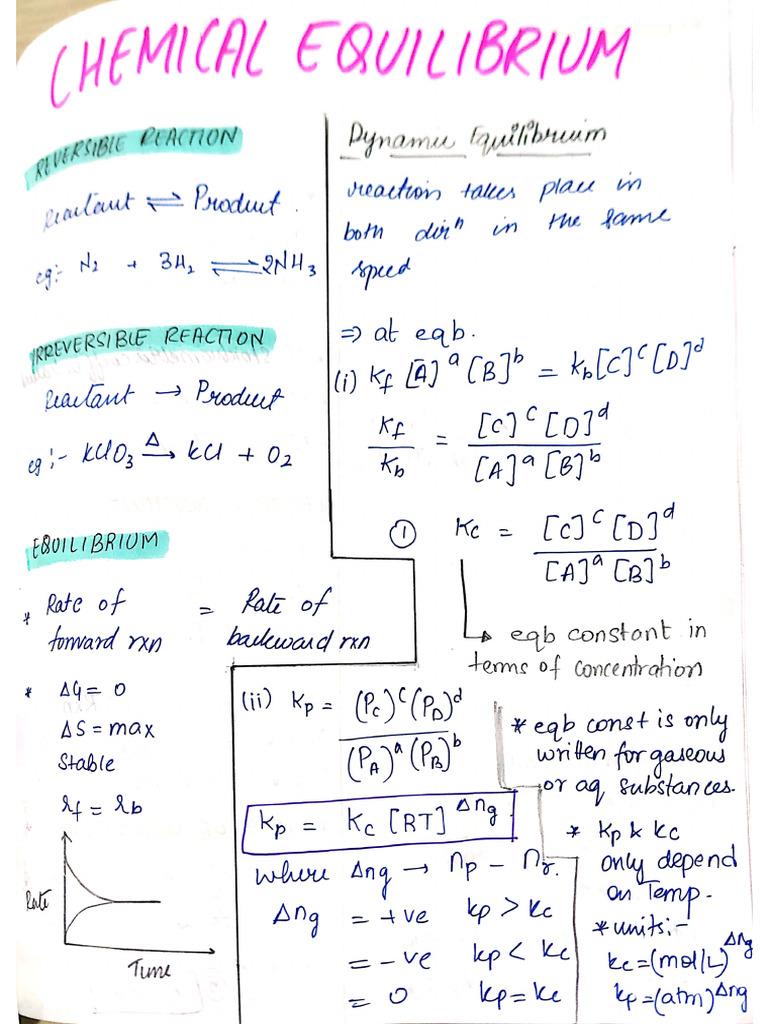 CHEMICAL EQUILIBRIUM
REVERSIBLE REACTION
Reactant ⇌ Product.
eg:- N₂ + 3H₂ ⇌ 2NH₃
IRREVERSIBLE REACTION
Reactant → Product
eg:- KClO₃ →(Δ) KCl + O₂
EQUILIBRIUM
* Rate of = Rate of
forward rxn backward rxn
* ΔG = 0
ΔS = max
Stable
rf = rb
Rate
Time
Dynamic Equilibrium
reaction takes place in
both dirⁿ in the same
speed
⇒ at eqb.
(i) Kf [A]ᵃ [B]ᵇ = kb [C]ᶜ [D]ᵈ
Kf / Kb = [C]ᶜ [D]ᵈ / [A]ᵃ [B]ᵇ
① Kc = [C]ᶜ [D]ᵈ / [A]ᵃ [B]ᵇ
↳ eqb constant in
terms of concentration
(ii) Kp = (PC)ᶜ (PD)ᵈ / (PA)ᵃ (PB)ᵇ
Kp = Kc [RT]^Δng
where Δng → np - nr.
Δng = +ve kp > kc
= -ve kp < kc
= 0 kp = kc
* eqb const is only
written for gaseous
or aq substances.
* Kp & Kc
only depend
on Temp.
* units:-
kc = (mol/L)^Δng
kp = (atm)^Δng